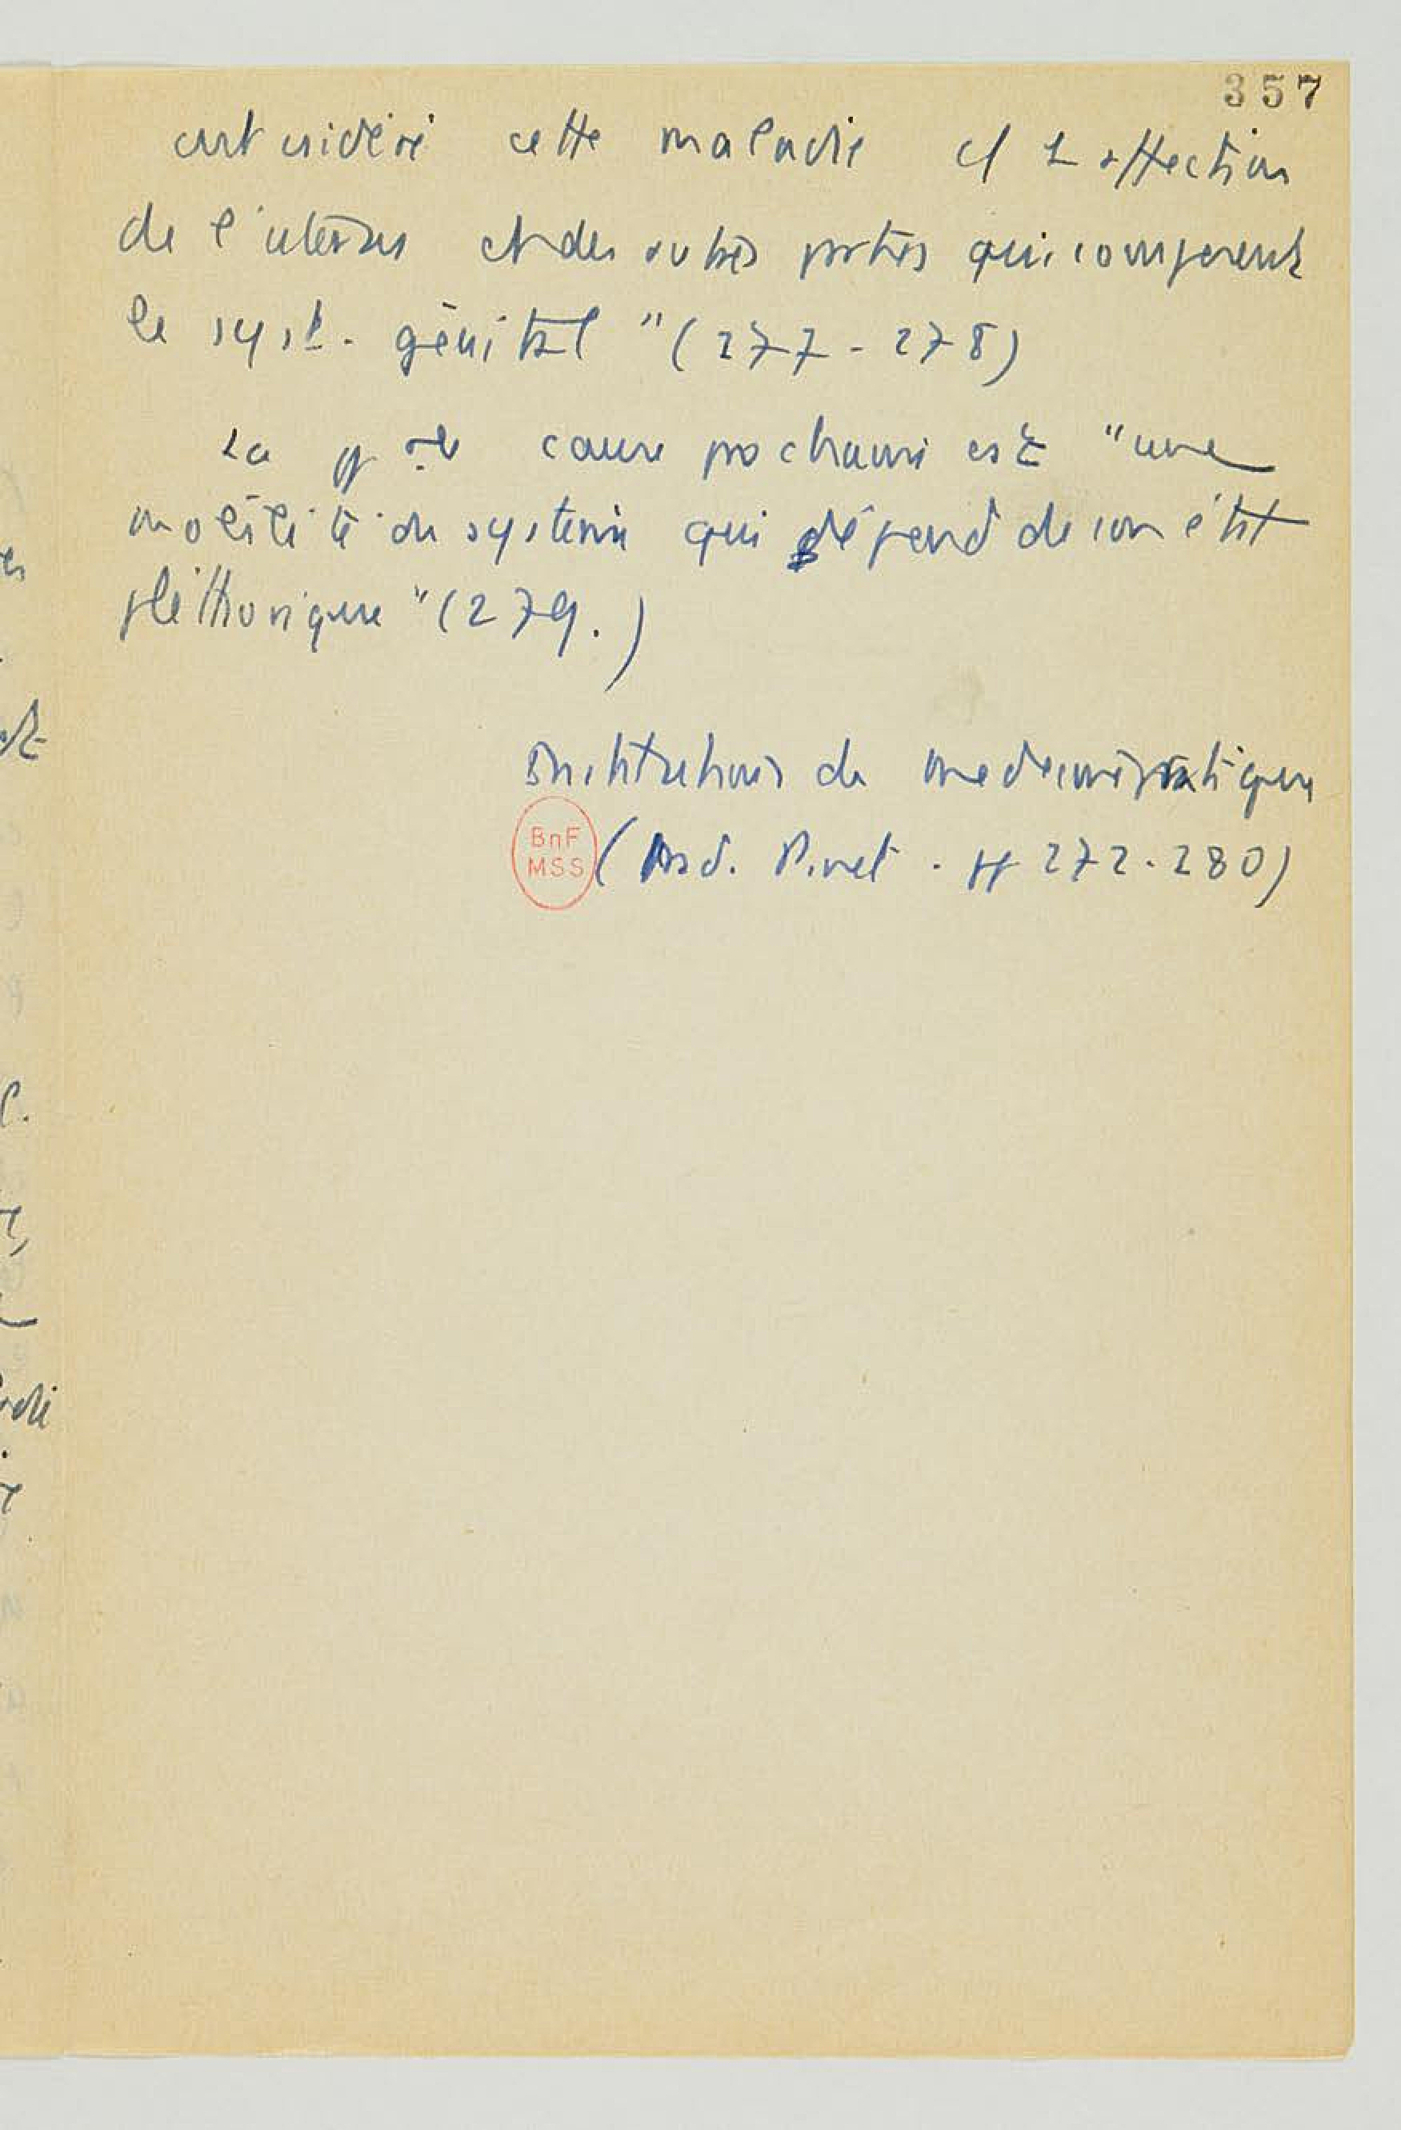 357
ont considéré cette maladie c/ 1 affection
de l'utérus et des autres parties qui composent
le syst. génital " (277-278)
La pp ale cause prochaine est "une
mobilité du système qui dépend de son état
pléthorique" (279.)
Institutions de médecine pratique
BnF
MSS
(trad. Pinel. pp 272-280)